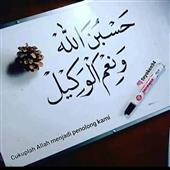 حَسْبُنَ اللّٰه
وَنِعْمَ الْوَكِيْلُ
Cukuplah Allah menjadi penolong kami